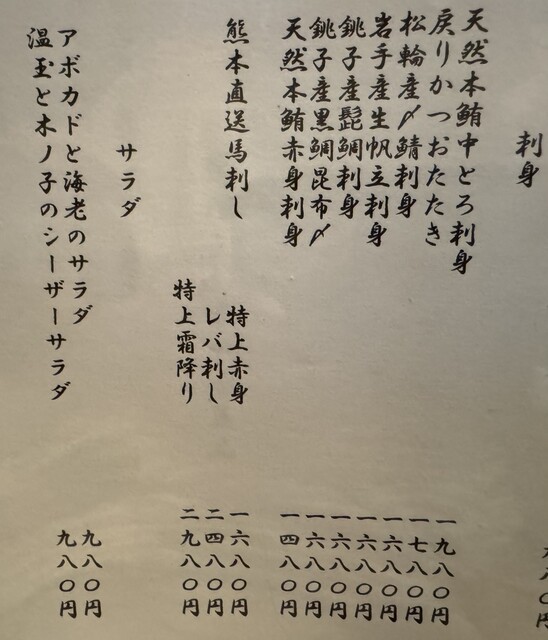 刺身
天然本鮪中とろ刺身 一九八〇円
戻りかつおたたき 一七八〇円
松輪産〆鯖刺身 一六八〇円
岩手産生帆立刺身 一六八〇円
銚子産髭鯛刺身 一六八〇円
銚子産黒鯛昆布〆 一六八〇円
天然本鮪赤身刺身 一四八〇円
熊本直送馬刺し 特上赤身 一六八〇円
レバ刺し 二四八〇円
特上霜降り 二九八〇円
サラダ
アボカドと海老のサラダ 九八〇円
温玉と木ノ子のシーザーサラダ 九八〇円